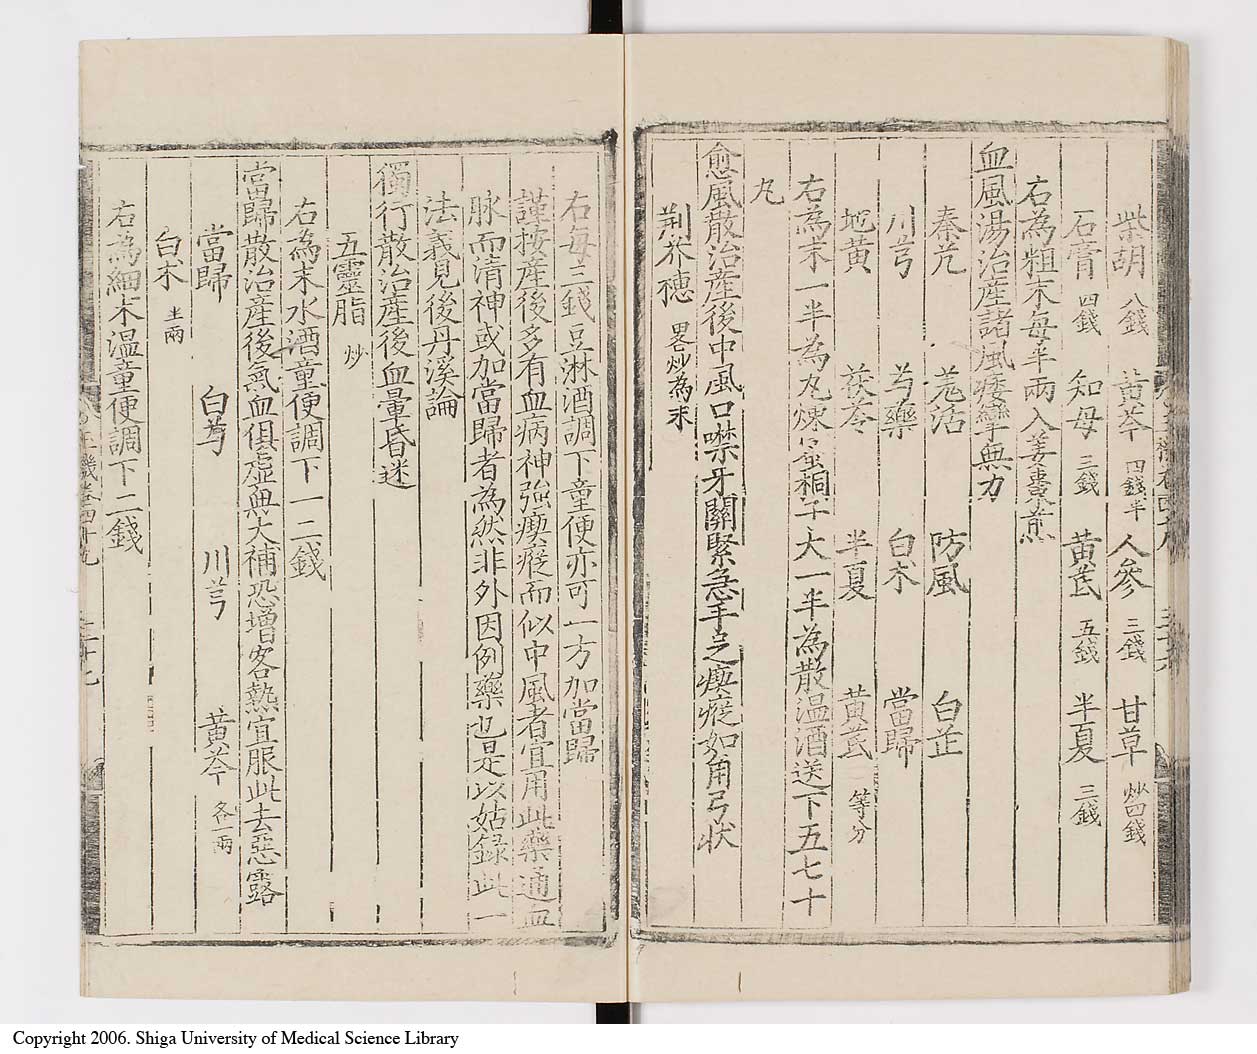 柴胡八錢 黃芩四錢半 人參三錢 甘草炒四錢
石膏四錢 知母三錢 黃芪五錢 半夏三錢
右為粗末每半兩入姜棗煎
血風湯治産諸風痿攣無力
秦艽 羗活 防風 白芷
川芎 芍藥 白朮 當歸
地黃 茯苓 半夏 黃芪等分
右為末一半為丸煉蜜桐子大一半為散温酒送下五七十
丸
愈風散治産後中風口噤牙關緊急手足瘈瘲如角弓状
荆芥穗畧炒為末
右每三錢豆淋酒調下童便亦可一方加當歸
謹按産後多有血病神強瘈瘲而似中風者宜用此藥通血
脉而清神或加當歸者為然非外因例藥也是以姑録此一
法義見後丹溪論
獨行散治産後血暈昏迷
五靈脂炒
右為末水酒童便調下一二錢
當歸散治産後氣血俱虛無大補恐増客熱宜服此去惡露
當歸 白芍 川芎 黃芩各一兩
白朮半兩
右為細末温童便調下二錢
Copyright 2006. Shiga University of Medical Science Library